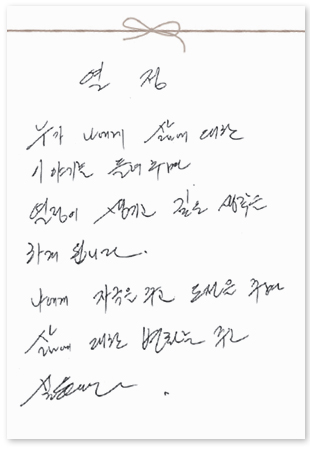 열 정
누가 나에게 삶에 대한
이야기를 들려주며
열정이 생기고 깊은 생각을
하게 됩니다.
나에게 자극을 주고 도전을 주며
삶에 대한 변화를 주고